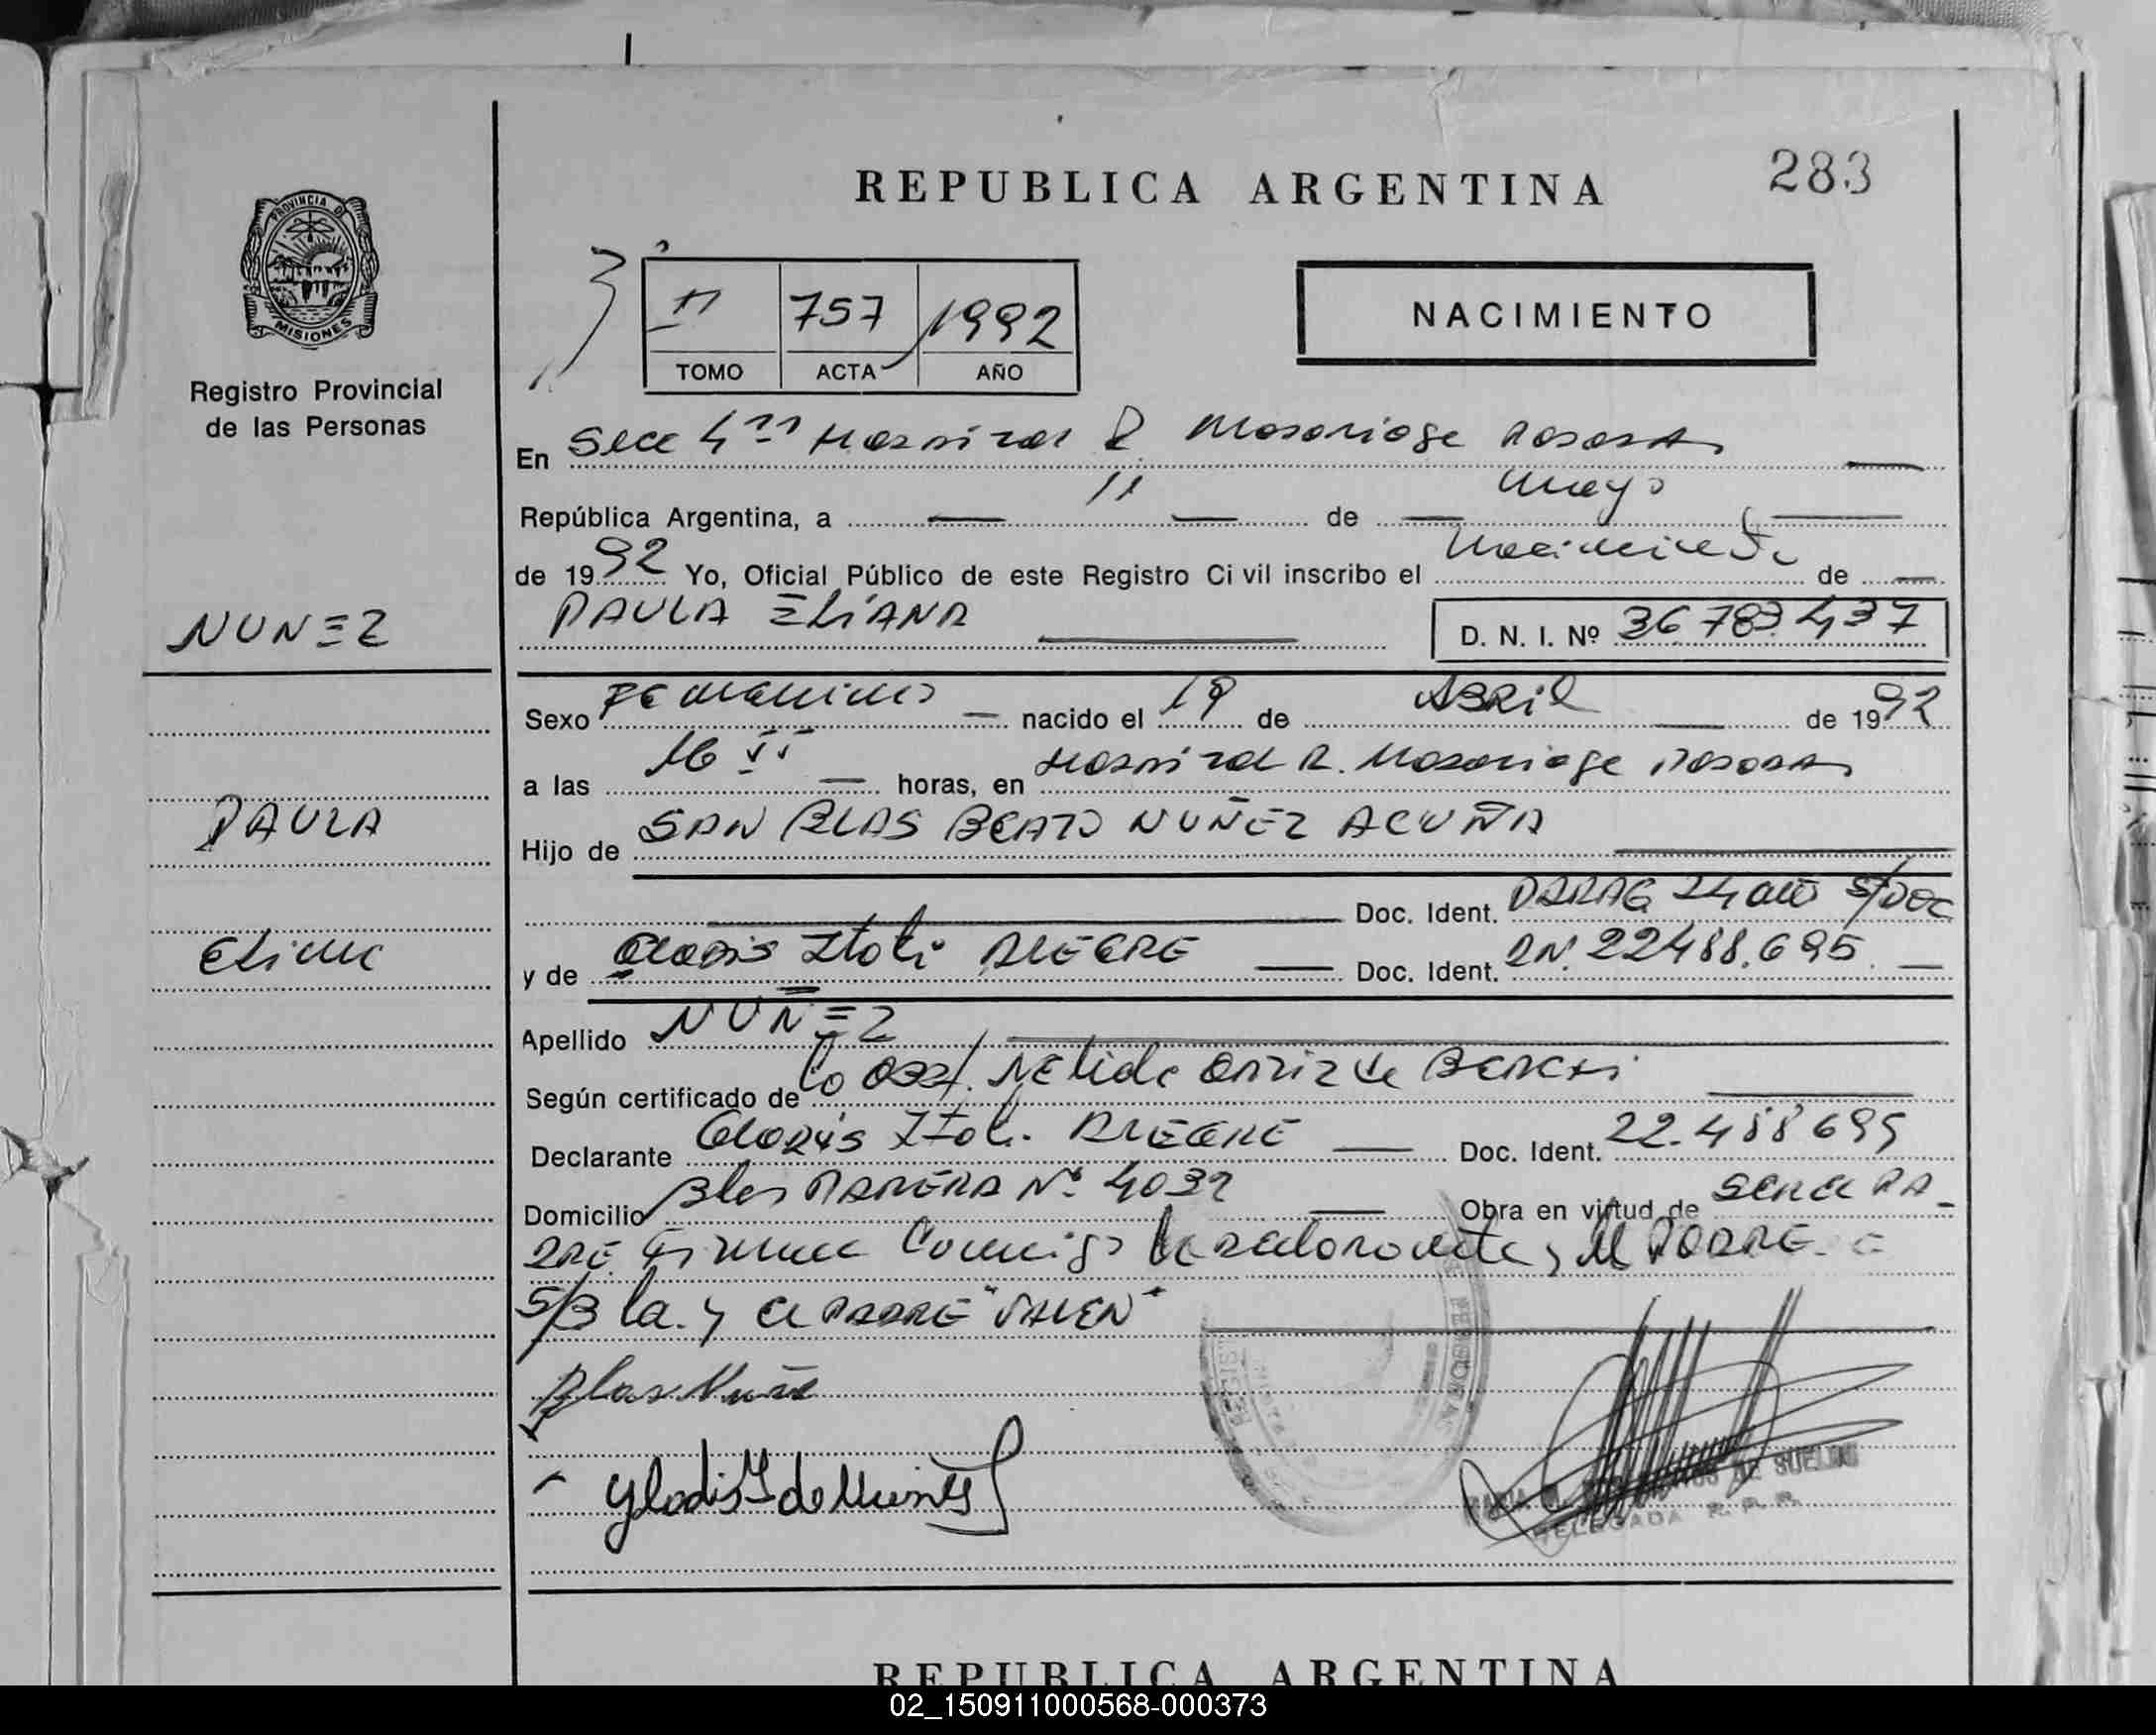 REPUBLICA ARGENTINA
283
PROVINCIA DE
MISIONES
Registro Provincial
de las Personas
II 757 1992
TOMO ACTA AÑO
NACIMIENTO
En Secc 4ta Hospital R. Madariaga Posadas
República Argentina, a 11 de Mayo
de 1992 Yo, Oficial Público de este Registro Civil inscribo el Nacimiento de
PAULA ELIANA
D. N. I. Nº 36783.437
NUÑEZ
PAULA
Eliana
Sexo Femenino nacido el 19 de ABRil de 1992
a las 16 horas, en Hospital R. Madariaga Posadas
Hijo de SAN BLAS BEATO NUÑEZ ACUÑA
Doc. Ident. PARAG 24 año S/Doc
y de Gladis Itati ALEGRE Doc. Ident. DN. 22488.695
Apellido NUÑEZ
Según certificado de la Obst. Nelida Ortiz de
Declarante Gladis Itati ALEGRE Doc. Ident. 22.488695
Domicilio Blas PARERA Nº 4032 Obra en virtud de ser el PA-
DRE Firman Conmigo la declarante y el PADRE
S/B la. y el PADRE "VALEN"
Blas Nuñe
Gladis I de Nuñez
DELEGADA R. P. P.
REPUBLICA ARGENTINA
02_150911000568-000373